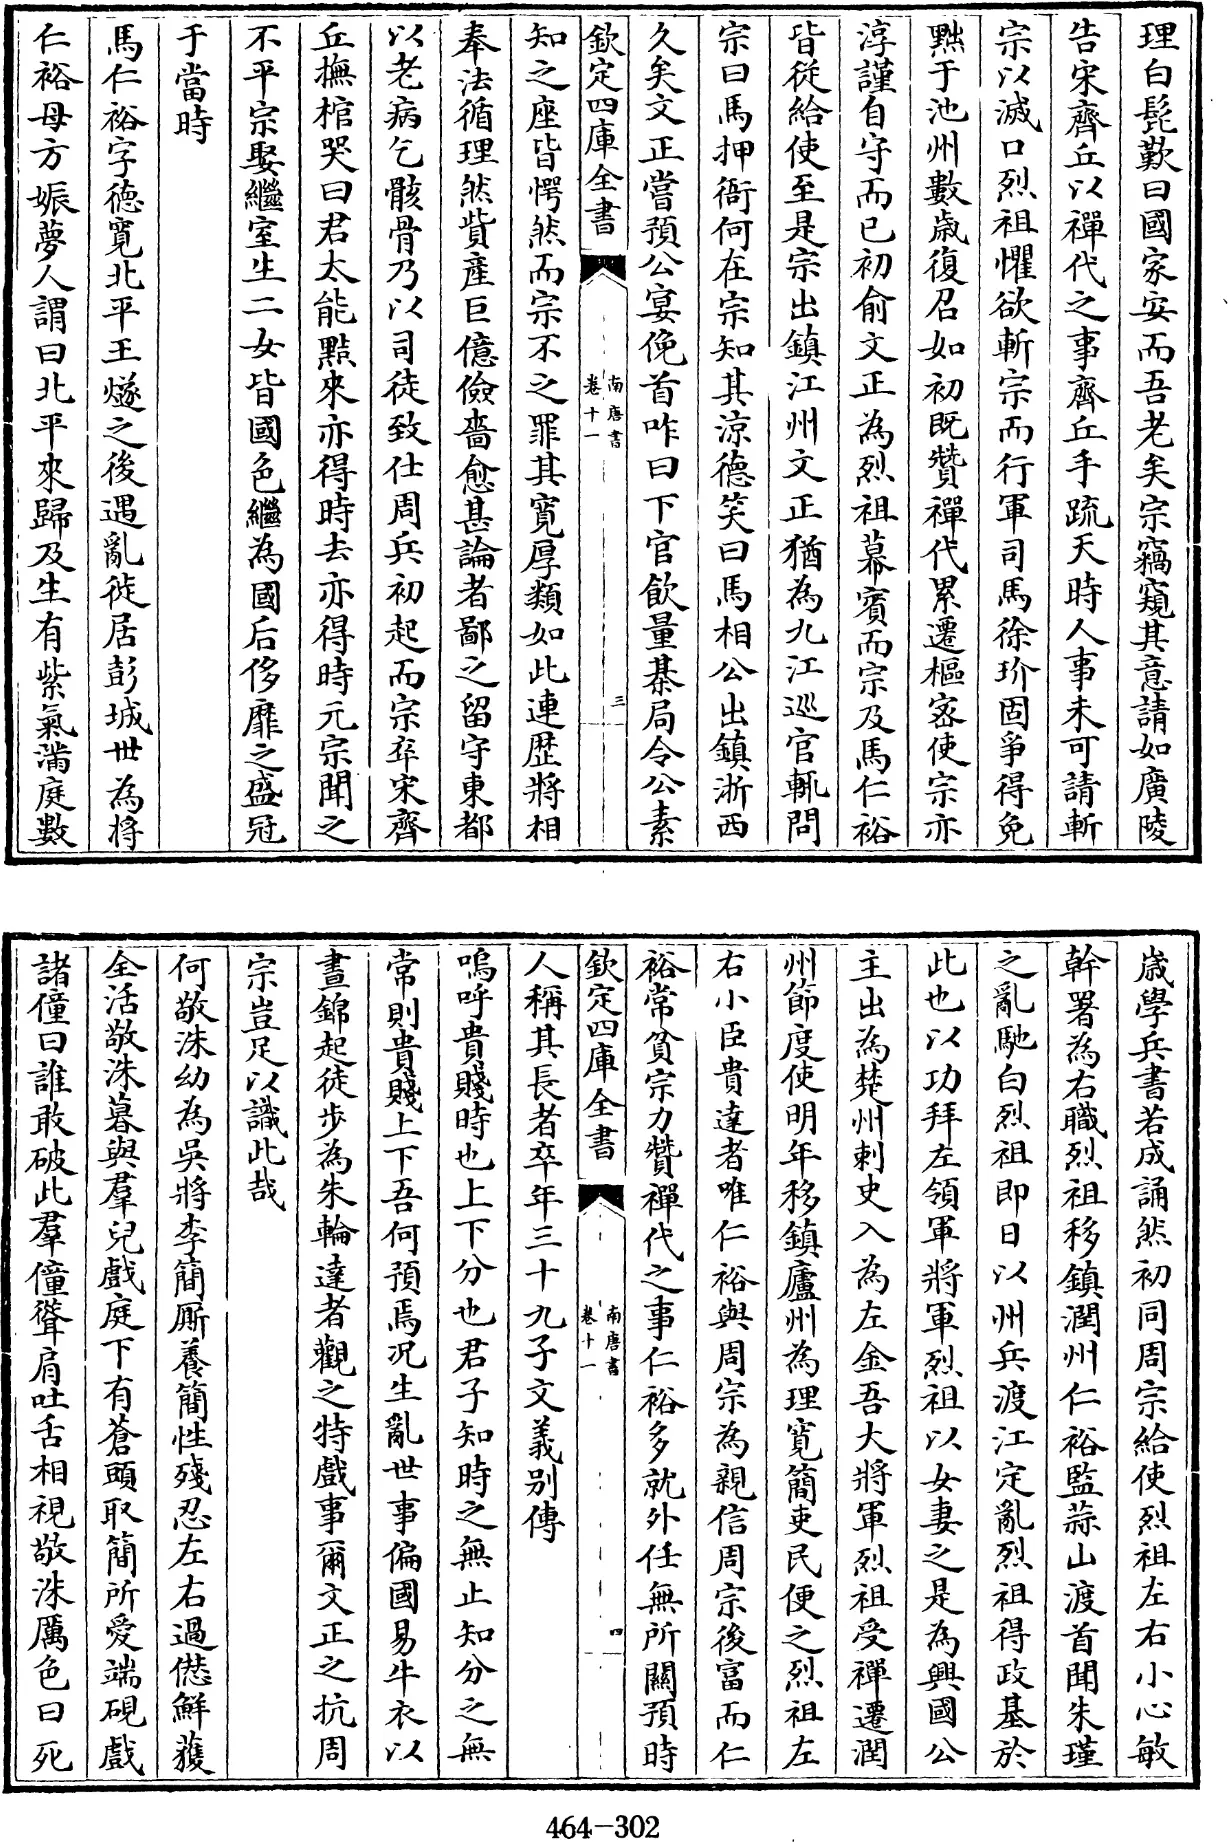 理白髭歎曰國家安而吾老矣宗竊窺其意請如廣陵
告宋齊丘以禪代之事齊丘手疏天時人事未可請斬
宗以滅口烈祖懼欲斬宗而行軍司馬徐玠固爭得免
黜于池州數歲復召如初既贊禪代累遷樞密使宗亦
淳謹自守而已初俞文正為烈祖幕賓而宗及馬仁裕
皆從給使至是宗出鎮江州文正猶為九江巡官輒問
宗曰馬押衙何在宗知其涼德笑曰馬相公出鎮浙西
久矣文正嘗預公宴俛首咋曰下官飲量棊局令公素
欽定四庫全書
南唐書
卷十一
三
知之座皆愕然而宗不之罪其寬厚類如此連歷將相
奉法循理然貲產巨億儉嗇愈甚論者鄙之留守東都
以老病乞骸骨乃以司徒致仕周兵初起而宗卒宋齊
丘撫棺哭曰君太能黠來亦得時去亦得時元宗聞之
不平宗娶繼室生二女皆國色繼為國后侈靡之盛冠
于當時
馬仁裕字德寬北平王燧之後遇亂徙居彭城世為將
仁裕母方娠夢人謂曰北平來歸及生有紫氣滿庭數
歲學兵書若成誦然初同周宗給使烈祖左右小心敏
幹署為右職烈祖移鎮潤州仁裕監蒜山渡首聞朱瑾
之亂馳白烈祖即日以州兵渡江定亂烈祖得政基於
此也以功拜左領軍將軍烈祖以女妻之是為興國公
主出為楚州刺史入為左金吾大將軍烈祖受禪遷潤
州節度使明年移鎮廬州為理寬簡吏民便之烈祖左
右小臣貴達者唯仁裕與周宗為親信周宗後富而仁
裕常貧宗力贊禪代之事仁裕多就外任無所關預時
欽定四庫全書
南唐書
卷十一
四
人稱其長者卒年三十九子文義別傳
嗚呼貴賤時也上下分也君子知時之無止知分之無
常則貴賤上下吾何預焉况生亂世事偏國易牛衣以
晝錦起徒步為朱輪達者觀之特戲事爾文正之抗周
宗豈足以識此哉
何敬洙幼為吳將李簡厮養簡性殘忍左右過愆鮮獲
全活敬洙暮與羣兒戲庭下有蒼頭取簡所愛端硯戲
諸僮曰誰敢破此羣僮聳肩吐舌相視敬洙厲色曰死
464-302